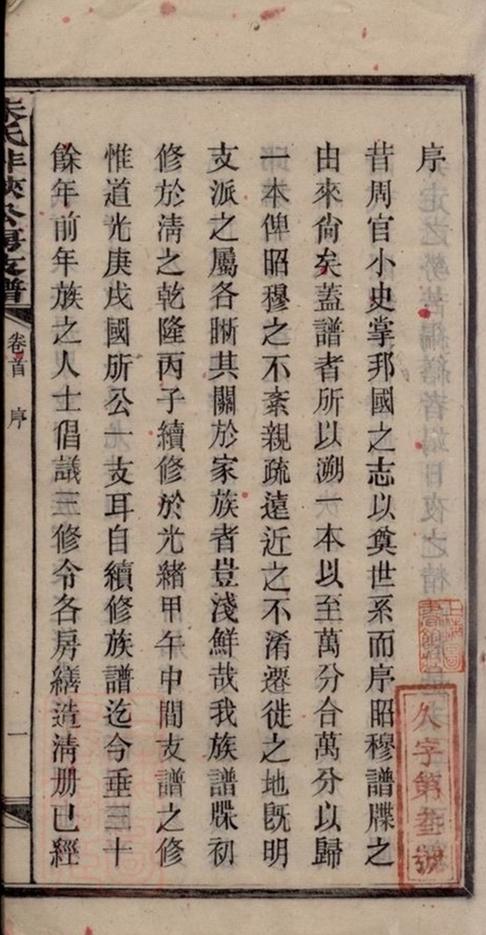 序
昔周官小史掌邦國之志以奠世系而序昭穆譜牒之
由來尙矣蓋譜者所以溯一本以至萬分合萬分以歸
一本俾昭穆之不紊親疏遠近之不淆遷徙之地旣明
支派之屬各晰其關於家族者豈淺鮮哉我族譜牒初
修於淸之乾隆丙子續修於光緒甲午中間支譜之修
惟道光庚戌國所公一支耳自續修族譜迄今垂三十
餘年前年族之人士倡議三修令各房繕造淸册已經
朱氏 公房支譜
卷首 序
一
久字第 號